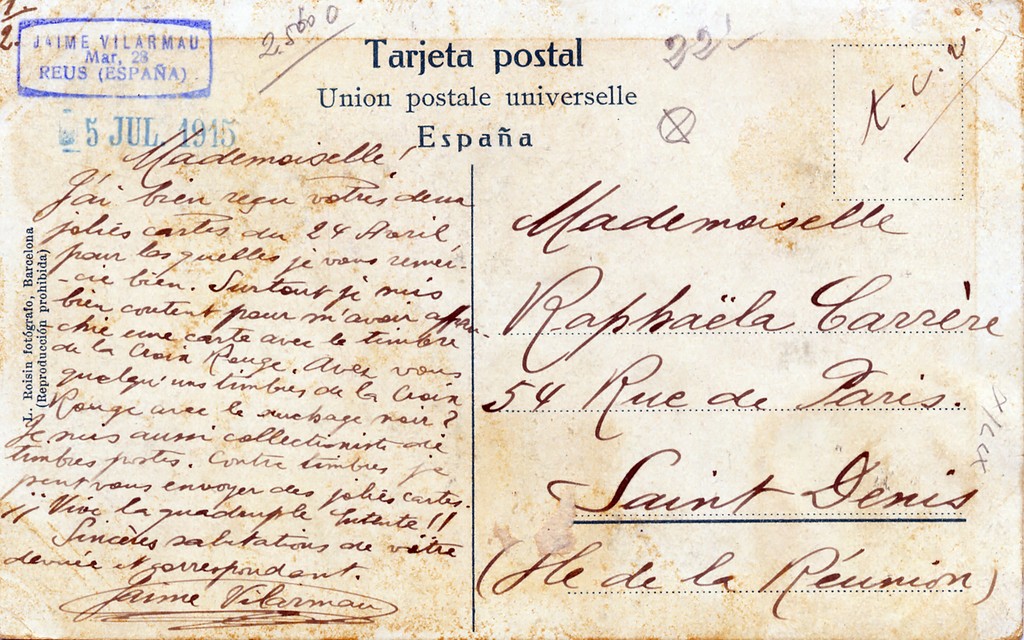 JAIME VILARMAU
Mar, 28
REUS (ESPAÑA)
5 JUL. 1915
Tarjeta postal
Union postale universelle
España
22'-
T. C. V.
L. Roisin fotógrafo, Barcelona
(Reproducción prohibida)
Mademoiselle!
J'ai bien reçu votres deux
joliés cartes du 24 Avril,
pour les quelles je vous remer-
-cie bien. Surtout je suis
bien content pour m'avoir affran
chie une carte avec le timbre
de la Croix Rouge. Avez vous
quelqu'uns timbres de la Croix
Rouge avec le suchage noir?
Je suis aussi collectioniste de
timbres postes. Contre timbres je
peut vous envoyer des joliés cartes.
¡¡ Vive la quadruple Entente!!
Sincères salutations de vôtre
devouée et correspondant.
Jaime Vilarmau
Mademoiselle
Raphaëla Carrère
54 Rue de Paris.
Saint Denis
(Ile de la Réunion)